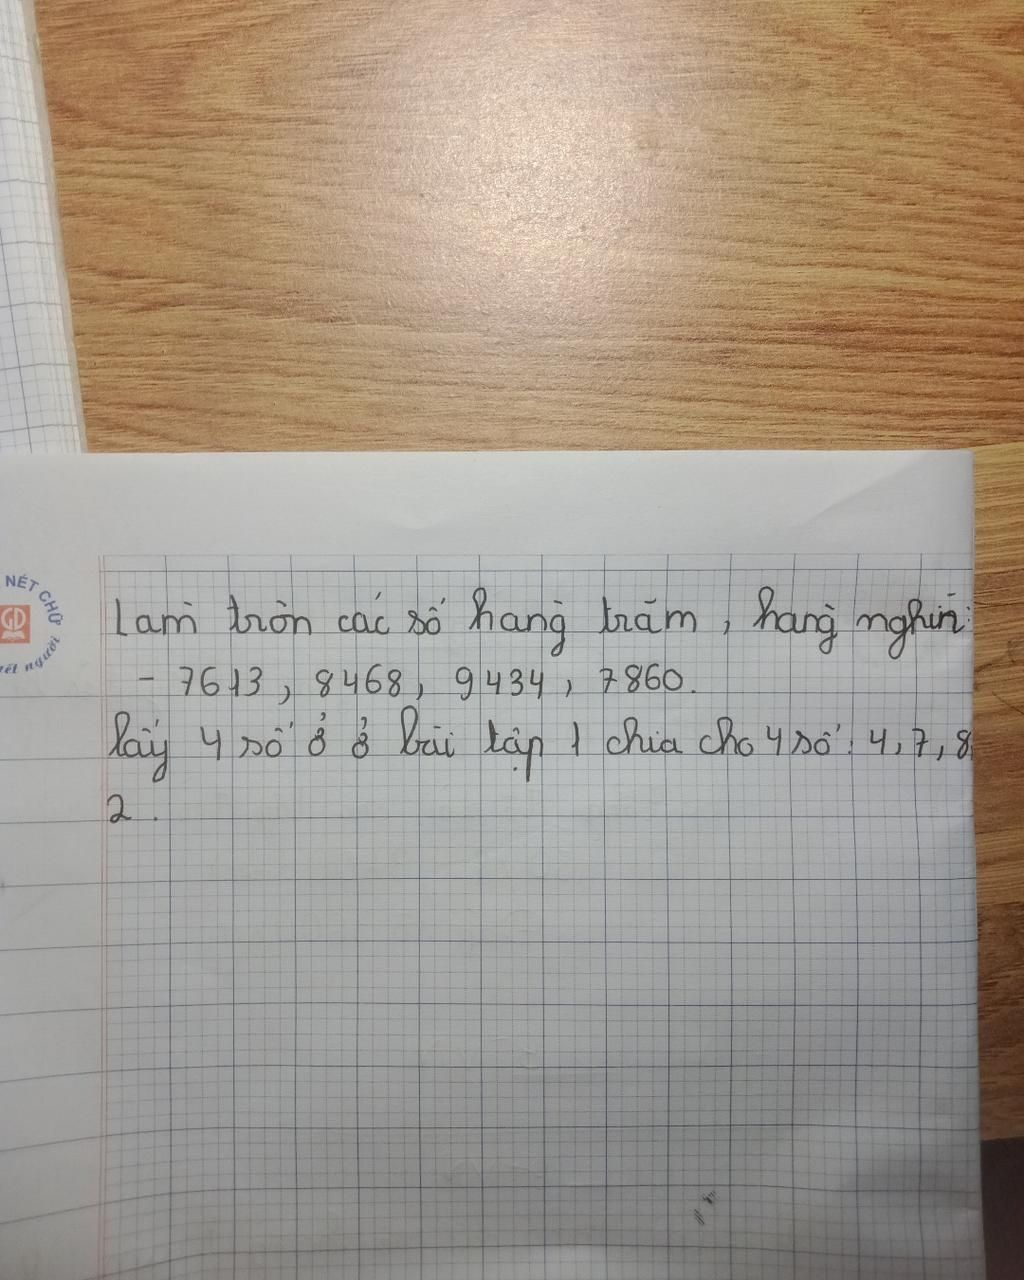 NÉT CHỮ
GD
nết người
Làm tròn các số hàng trăm, hàng nghìn:
- 7613, 8468, 9434, 7860.
lấy 4 số ở ở bài tập 1 chia cho 4 số: 4, 7, 8,
2.